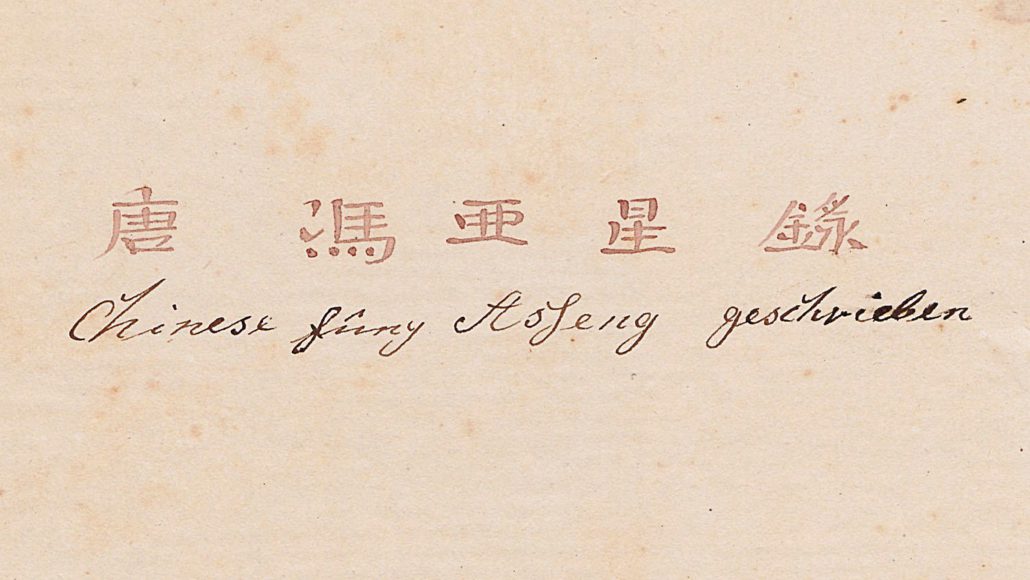 唐馮亜星錄
Chinese fûng Asseng geschrieben